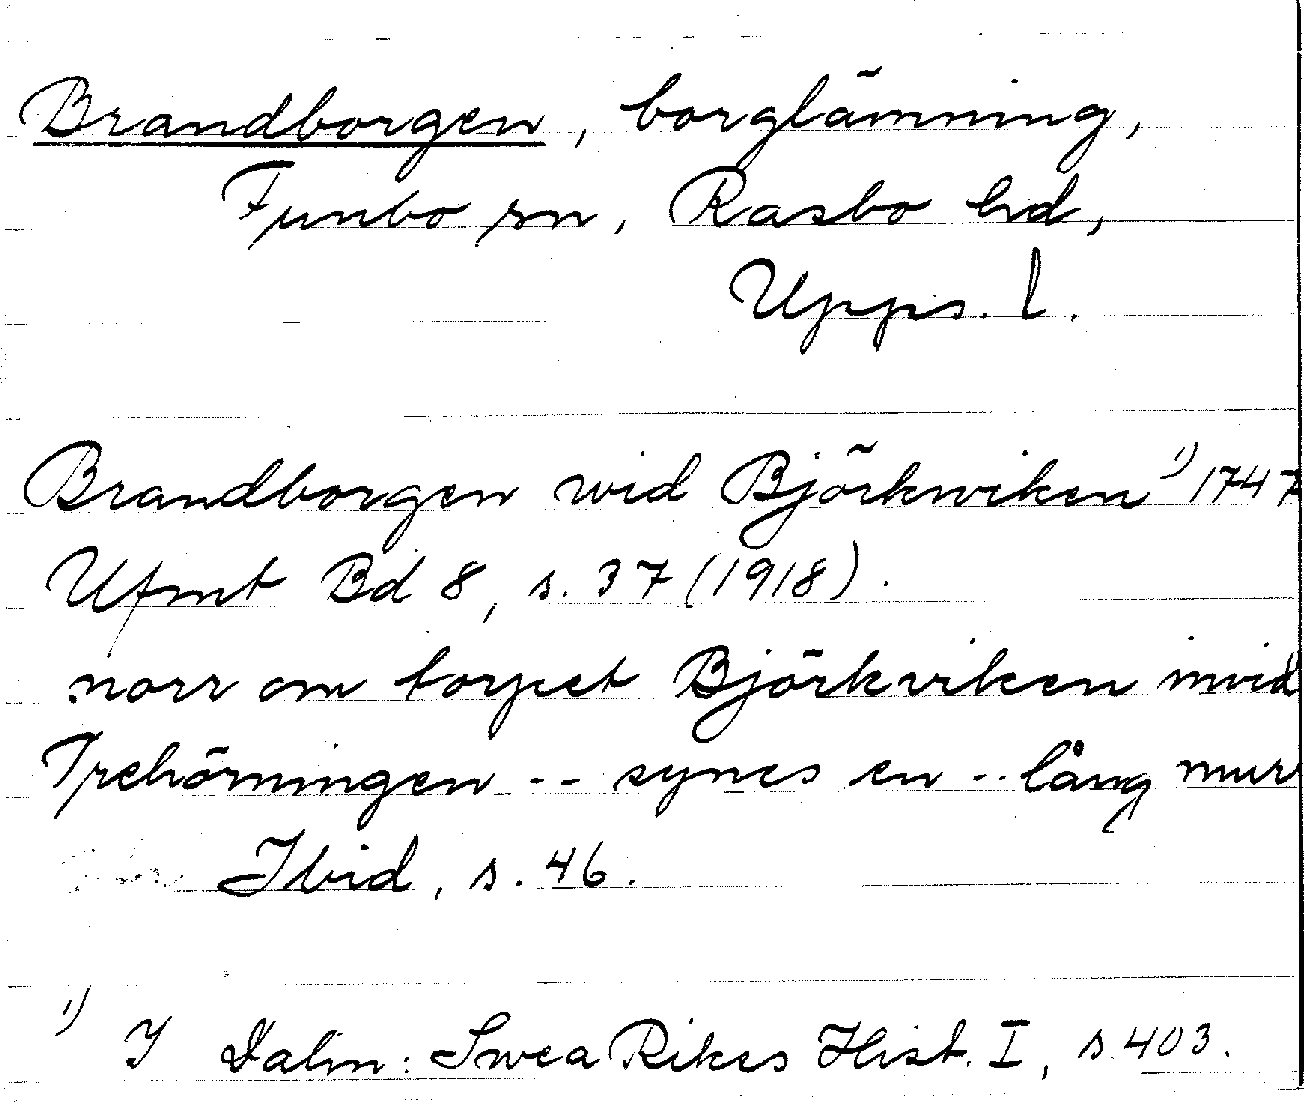 Brandborgen, borglämning,
Funbo sn, Rasbo hd,
Upps. l.
Brandborgen wid Björkwiken ¹⁾ 1747
Ufmt Bd 8, s. 37 (1918).
norr om torpet Björkviken invid
Trehörningen -- synes en -- lång mur
Ibid, s. 46.
¹⁾ I Dalin: Swea Rikes Hist. I, s 403.